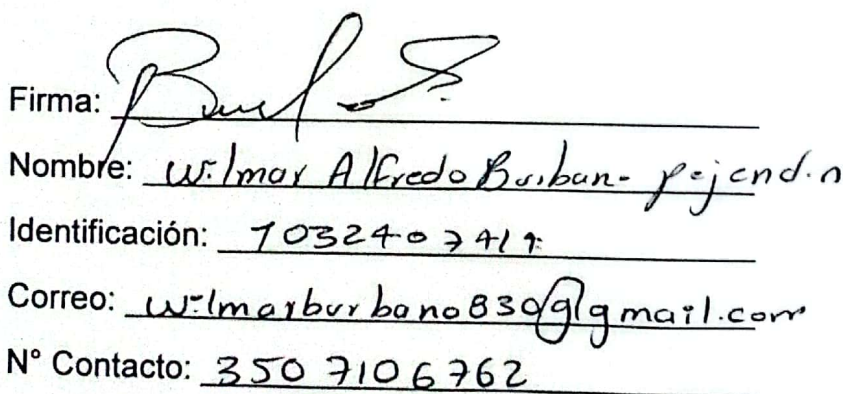 Firma:
Nombre: Wilmar Alfredo Burbano Pejendino
Identificación: 1032407419
Correo: wilmarburbano830@gmail.com
N° Contacto: 350 7106762